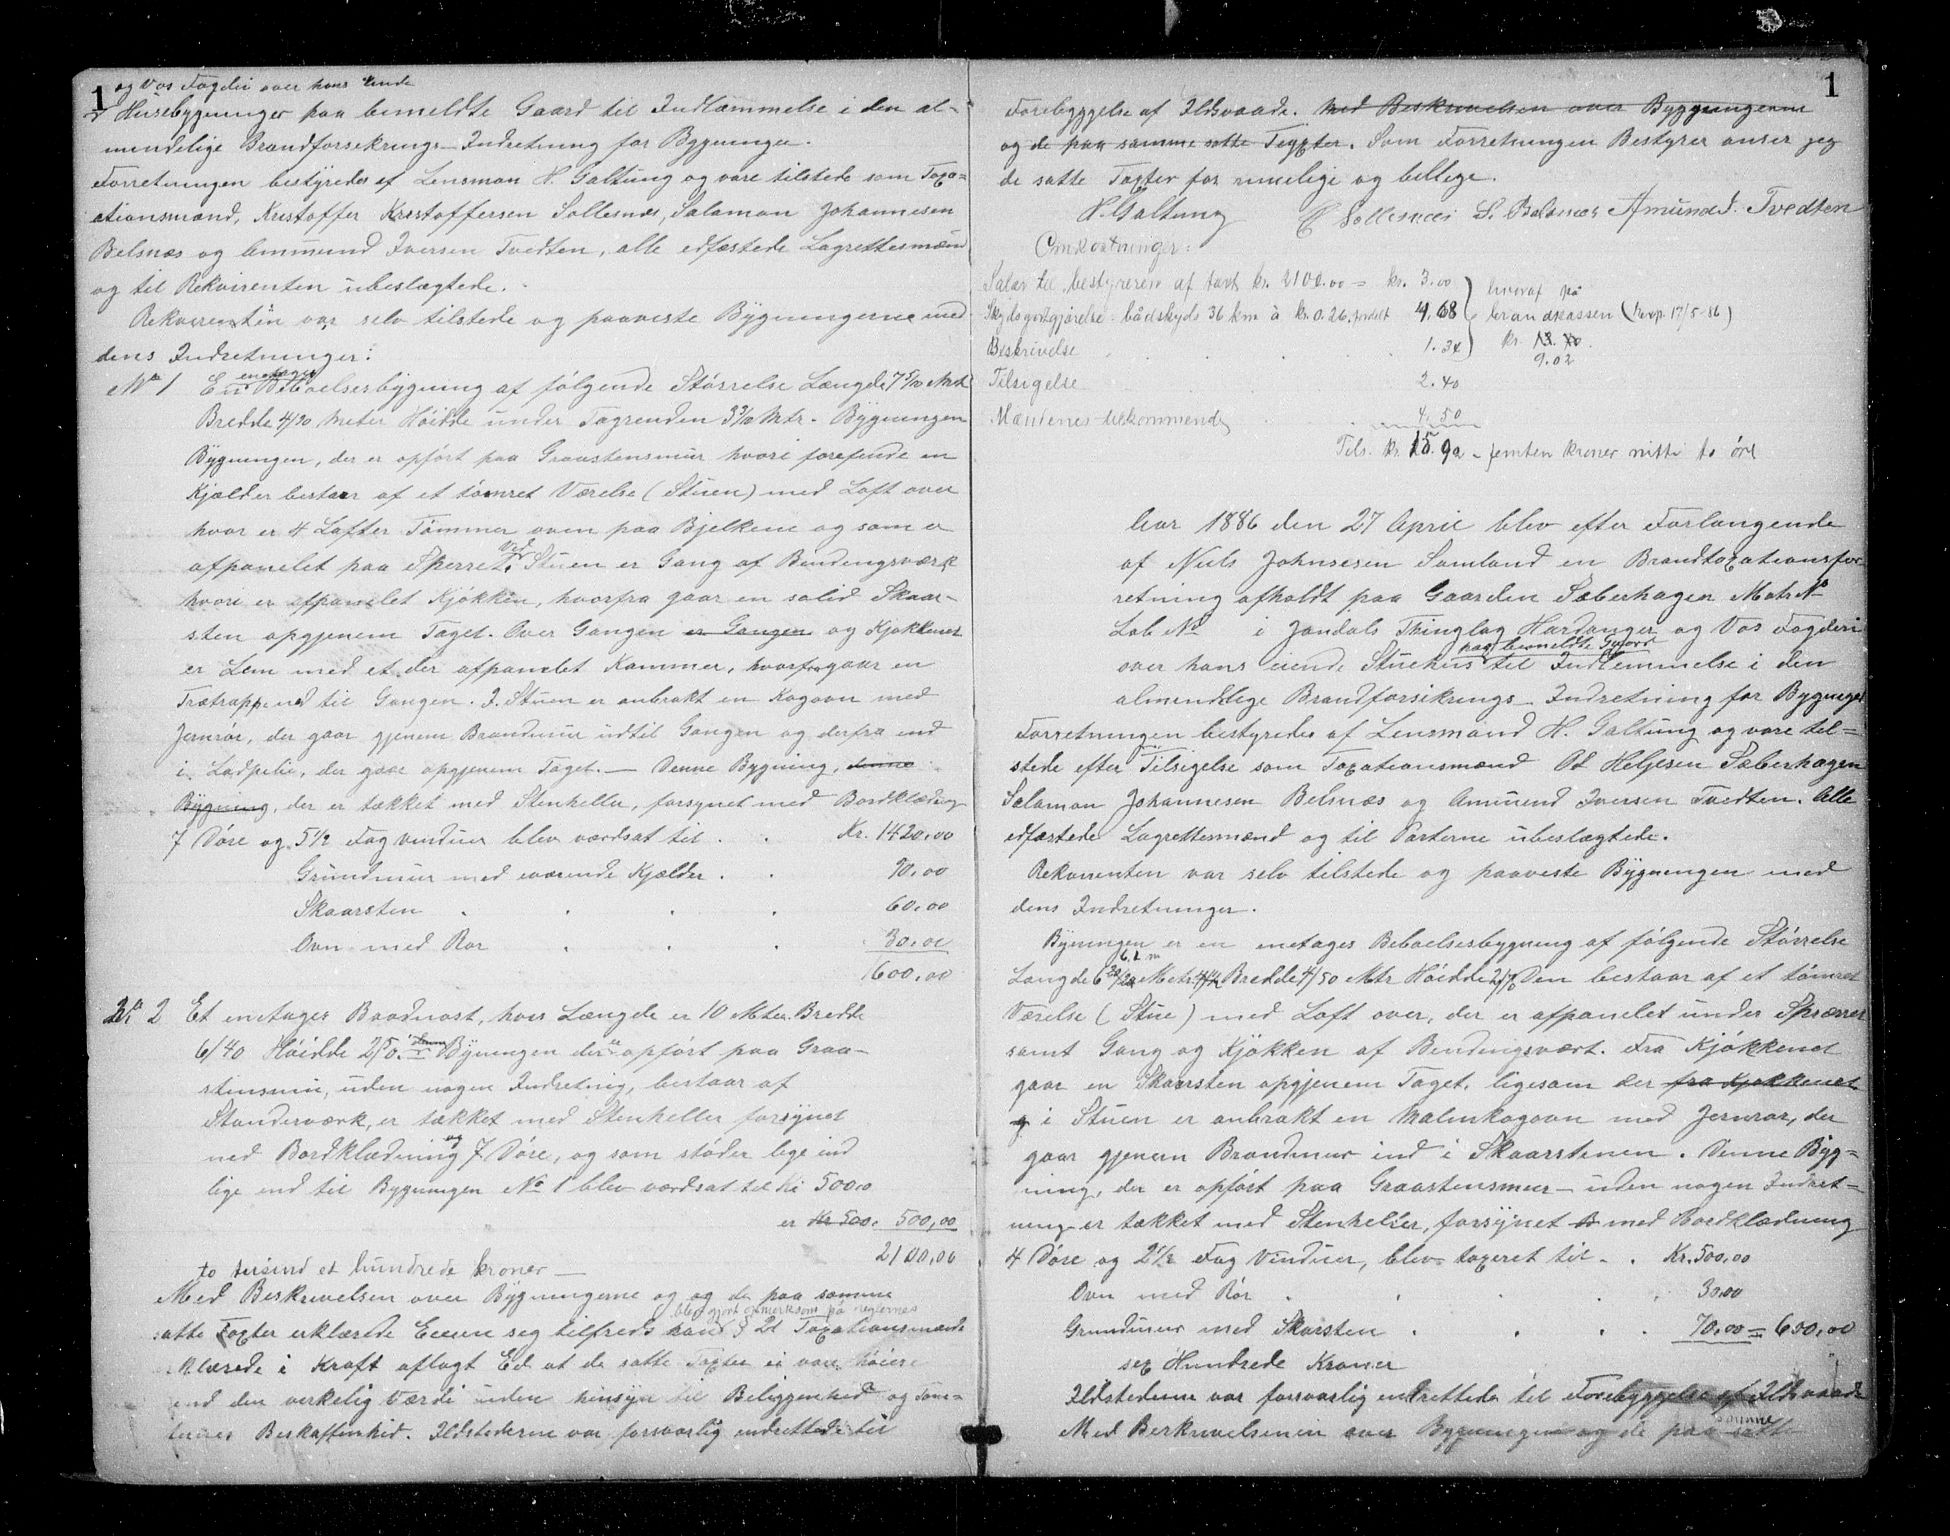 1
og Vos Fogderi over hans eiende
Husebygninger paa bemeldte Gaard til Indlæmmelse i den al-
mendelige Brandforsekrings-Indretning for Bygninger.
Forretningen bestyredes af Lensman H. Galtung og vare tilstede som Taxa-
ationsmænd, Kristoffer Kristoffersen Sollesnes, Salamon Johannesen
Belsnæs og Ammund Iversen Tvedten, alle edfæstede Lagrettesmænd
og til Rekvirenten ubeslægtede.
Rekvirenten var selv tilstede og paaveste Bygningerne med
dens Indretninger:
No 1 En enetages Beboelsesbygning af følgende Størrelse Længde 7 5/10 Mtr
Bredde 4/90 Meter Høidde under Tagrenden 3 3/10 Mtr. Bygningen
Bygningen, der er opført paa Graastensmur hvori forefinde en
Kjælder bestaar af et tømret Værelse (Stuen) med Loft over
hvor er 4 Lafter Tømmer oven paa Bjelkene og som er
afpanelet paa Sperret. Ved Stuen er Gang af Bindingsværk
hvori er afpanelet Kjøkken, hvorfra gaar en solid Skaar-
sten opgjenem Taget. Over Gangen er Gangen og Kjøkkenet
er Lem med et der afpanelet Kammer, hvorfra gaar en
Trætrappe ned til Gangen. I Stuen er anbrakt en Kogovn med
Jernrør, der gaar gjenem Brandmur udtil Gangen og derfra ind
i Ladpibe, der gaar opgjenem Taget. — Denne Bygning, denne
Bygning, der er tækket med Stenheller, forsynet med Bordklædning
7 Døre og 5 1/2 Fag vinduer blev værdsat til . . Kr. 1420,00
Grundmur med værende Kjælder . . 90,00
Skaarsten . . . . 60,00
Ovn med Rør . . . 30,00
1600,00
No 2 Et enetages Baadnost, hvis Længde er 10 Meter Bredde
6/40 Høidde 2/50. denne Bygningen der er opført paa Graa-
stensmur, uden nogen Indretnig, bestaar af
Stenderværk, er tækket med Stenheller forsynet
med Bordklædning og 7 Døre, og som støder lige ind
lige ind til Bygningen No 1 blev værdsat til Kr 500,0
er Kr 500. 500,00
2100,00
to tusind et hundrede kroner —
Med Beskrivelsen over Bygningerne og og de paa samme
satte Taxter erklærede Eieren seg tilfreds blev gjort opmerksom på reglernes § 21 Taxationsmænde
erklærede i Kraft aflagt Ed at de satte Taxter ei vare høiere
end den verkelig Værdi uden hensyn til Beliggenhed og Tom-
ternes Beskaffenhed. Ildstederne var forsvarlig indrettede til
1
Forebyggelse af Ildsvaade. Med Beskrivelsen over Byggningerne
og de paa samme satte Taxter. Som Forretningen Bestyrer anser jeg
de satte Taxter for rimelige og billege.
H. Galtung K Sollesnes S. Belsnæs Amund I. Tvedten
Omkostninger:
Salær til bestyreren af taxt kr. 2100.00 = kr. 3.00
Skydsgodtgjørelse: bådskyds 36 km à kr. 0.26, fordelt 4.68
Beskrivelse . . . . 1.34
hvoraf på
brandkassen (kvp. 17/5-86)
kr. 9.02
Tilsigelse 2.40
Mændenes tilkommende . . 4.50
Tils. kr. 15.92 - femten kroner nitti to øre
Aar 1886 den 27 April blev efter Forlangende
af Niels Johnsesen Samland en Brandtaxationsfor-
retning afholdt paa Gaarden Sæberhagen Matr No
Løb No i Jondals Thinglag Hardanger og Vos Fogderi
over hans eiende Stuehus paa bemeldte Gaard til Indlemmelse i den
almendelige Brandforsikrings-Indretning for Bygninger
Forretningen bestyredes af Lensmand H. Galtung og vare til-
stede efter Tilsigelse som Taxationsmænd Od Heljesen Sæberhagen
Salamon Johannesen Belsnæs og Amund Iversen Tvedten. Alle
edfæstede Lagrettesmænd og til Parterne ubeslægtede.
Rekvirenten var selv tilstede og paaveste Bygningen med
dens Indretninger.
Bygningen er en enetages Beboelsesbygning af følgende Størrelse
Længde 6 20/20 Metr Bredde 4/50 Mtr Høidde 2/70 Den bestaar af et tømret
Værelse (Stue) med Loft over, der er afpanelet under Sperrer
samt Gang og Kjøkken af Bindingsværk. Fra Kjøkkenet
gaar en Skaarsten opgjenem Taget, ligesom der fra Kjøkkenet
og i Stuen er anbrakt en Malmkogovn med Jernrør, der
gaar gjenem Brandmur ind i Skaarstenen. Denne Byg-
ning, der er opført paa Graastensmur — uden nogen Indret-
ning er tækket med Stenheller, forsynet med Bordklædning
4 Døre og 2 1/2 Fag Vinduer, blev taxeret til . . Kr. 500,00
Ovn med Rør . . . . 30,00
Grundmur med Skarsten . . . . 70,00 = 600,00
sex Hundrede Kroner
Ildstederne var forsvarlig indrettede til Forebyggelse af Ildsvaade
Med Berkrivelsenin over Bygningen og de paa samme satte